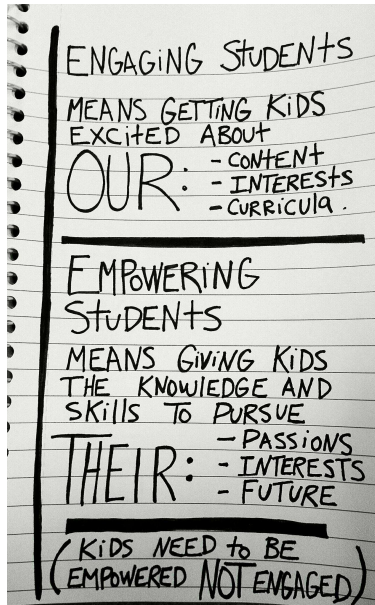 ENGAGiNG StUDENtS
MEANS GEttiNG KiDS
EXCitED ABOUt
OUR: - CONtENt
- INtEREStS
- CURRiCUla.
EMPOWERiNG
StUDENtS
MEANS GiViNG KiDS
THE KNOWlEDGE AND
SKills TO PURSUE
THEIR: - PASSIONS
- INTERESTS
- FUTURE
(KiDS NEED to BE
EMPOWERED NOT ENGAGED)